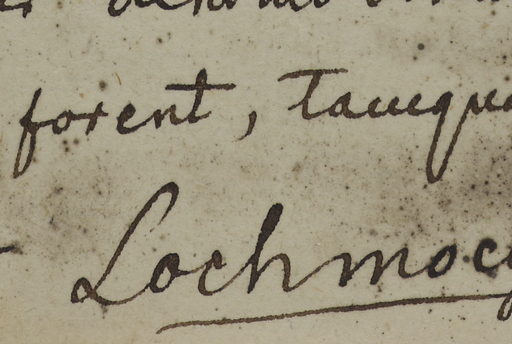 forent, tamqua
Lochmocy